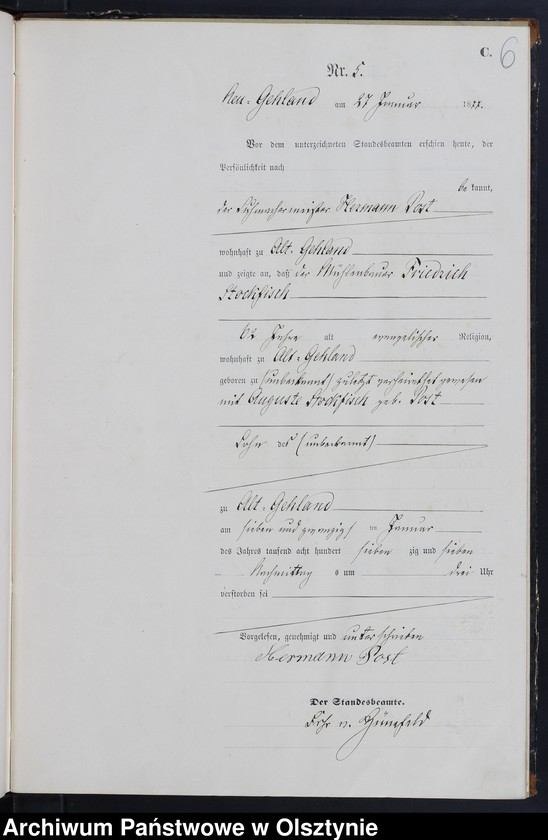 C. 6
Nr. 5.
Neu-Gehland am 27 Januar 1877.
Vor dem unterzeichneten Standesbeamten erschien heute, der
Persönlichkeit nach
be kannt,
der Schuhmachermeister Hermann Post
wohnhaft zu Alt-Gehland
und zeigte an, daß der Mühlenbauer Friedrich
Stockfisch
62 Jahre alt evangelischer Religion,
wohnhaft zu Alt-Gehland
geboren zu (unbekannt) zuletzt verheirathet gewesen
mit Auguste Stockfisch geb. Post
Sohn des (unbekannt)
zu Alt-Gehland
am sieben und zwanzigst en Januar
des Jahres tausend acht hundert sieben zig und sieben
Nachmittag s um drei Uhr
verstorben sei
Vorgelesen, genehmigt und unterschrieben
Hermann Post
Der Standesbeamte.
Archiwum Państwowe w Olsztynie